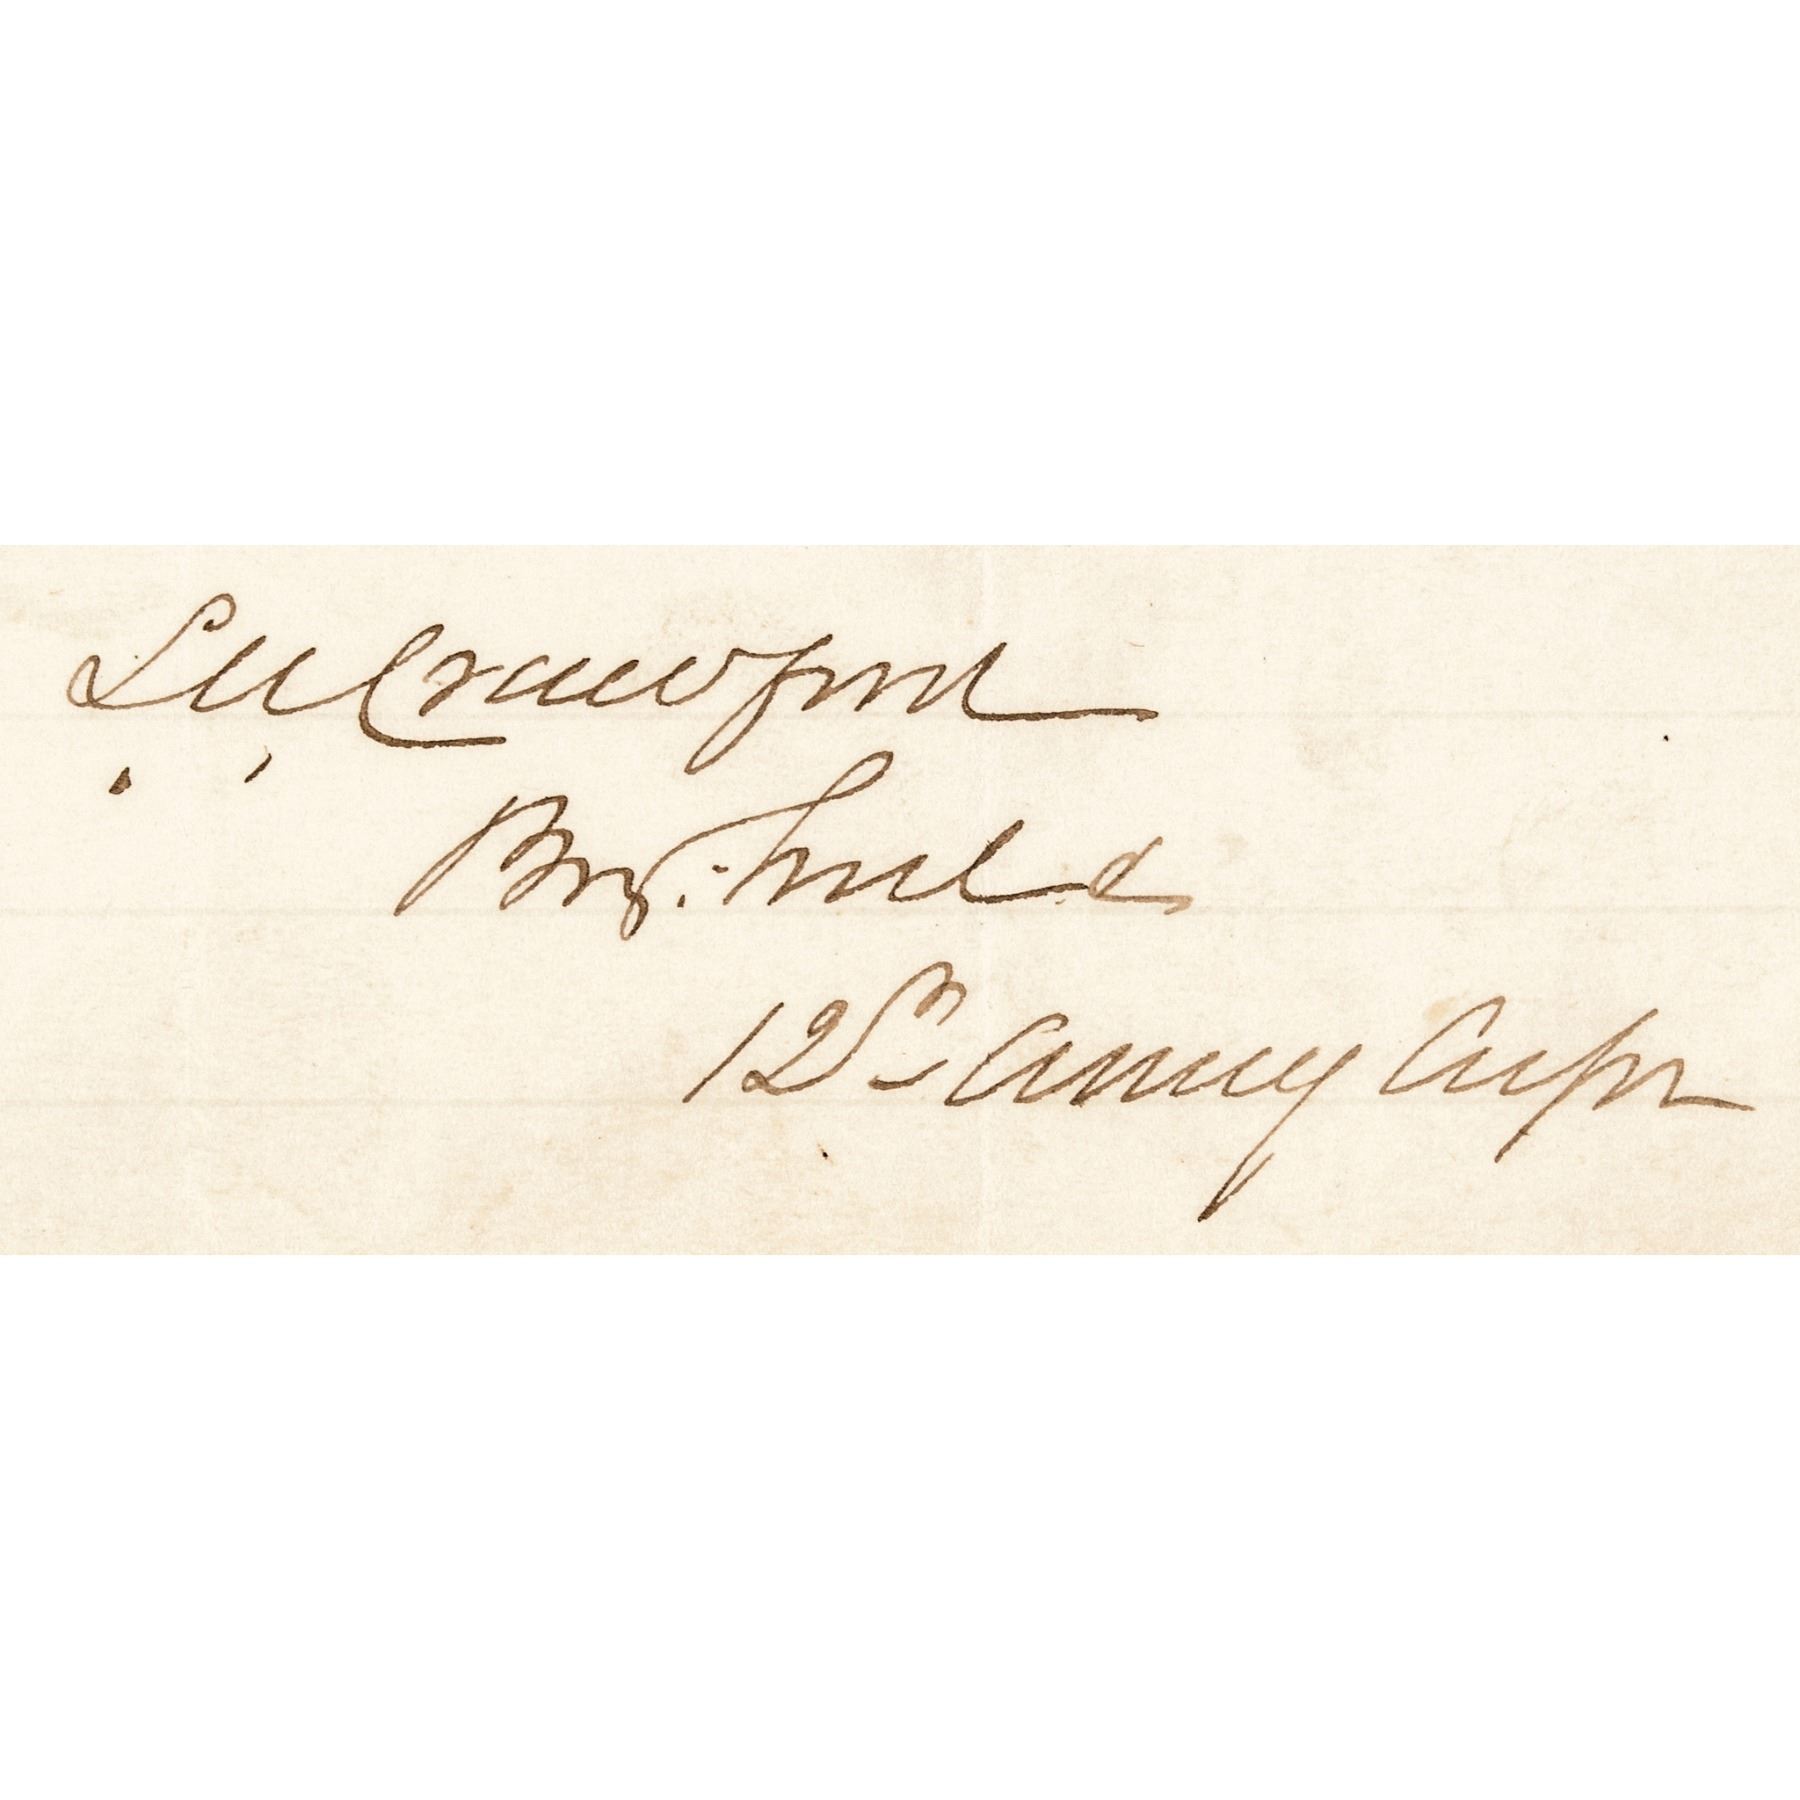 S.W. Crawford
Brig. Genl
12th Army Corps